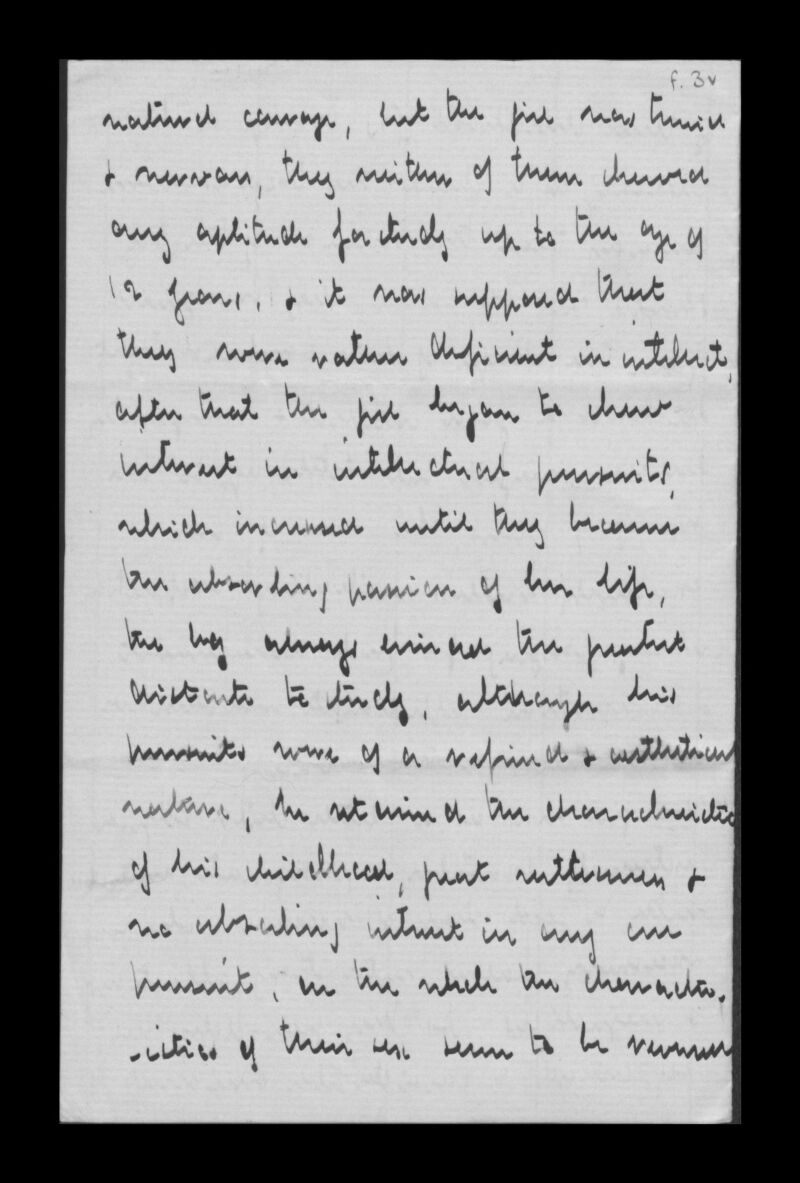 f. 3v
natural courage, but the girl was timid
& nervous, they neither of them showed
any aptitude for study up to the age of
12 years, & it was supposed that
they were rather deficient in intellect,
after that the girl began to show
interest in intellectual pursuits,
which increased until they became
the absorbing passion of her life,
the boy always evinced the greatest
distaste to study, although his
pursuits were of a refined & aesthetical
nature, he retained the characteristic
of his childhood, great restlessness &
no absorbing interest in any one
pursuit, on the whole the characte-
-istics of their sex seem to be reversed